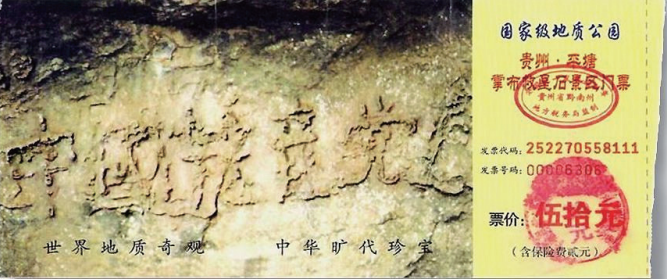 中國共產党亡
世界地质奇观
中华旷代珍宝
国家级地质公园
贵州·平塘
掌布救星石景区门票
贵州省黔南州
地方税务局监制
发票代码: 252270558111
发票号码: 00006306
票价: 伍拾元
(含保险费贰元)